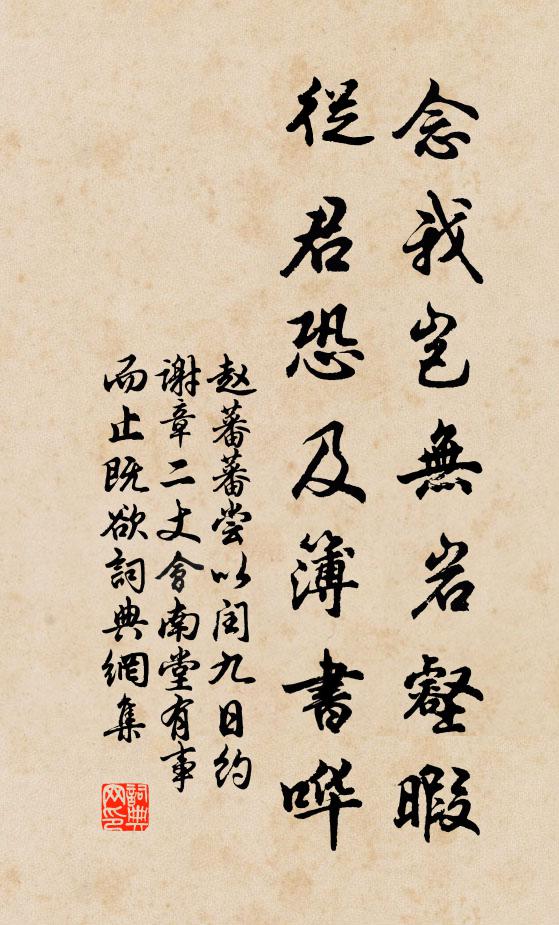 念我岂無岩壑暇
從君恐及簿書哗
赵蕃蕃尝以闰九日约
谢章二丈會南堂有事
而止既欲詞典網集
詞典
网印